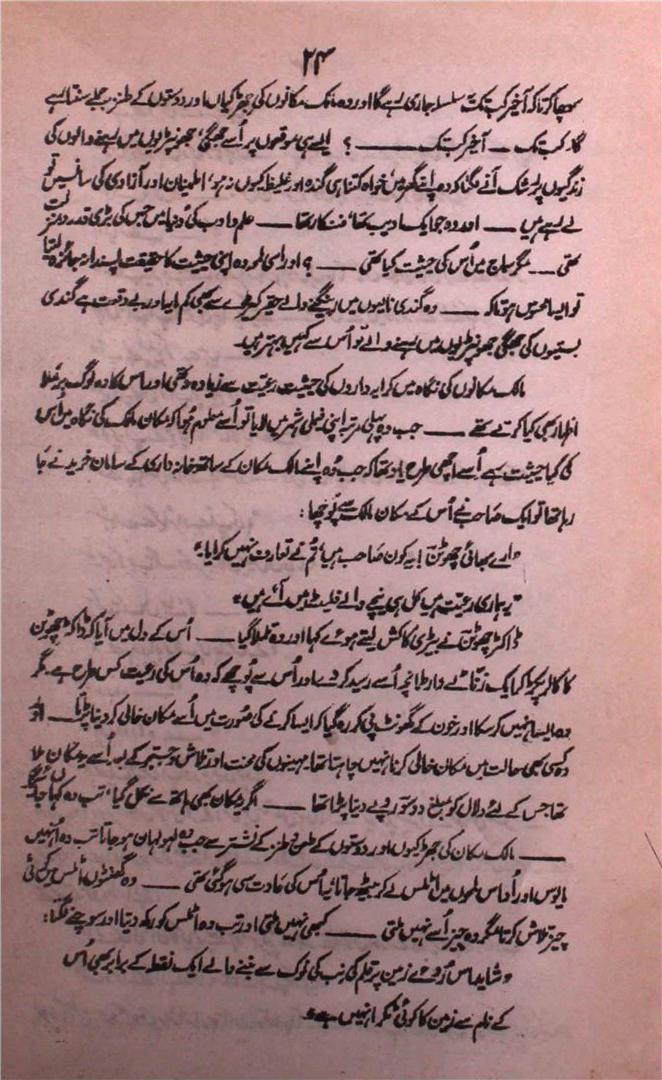 ۲۴
سوچا کرتا کہ آخر کب تک یہ سلسلہ جاری رہے گا اور وہ مالک مکانوں کی جھڑکیاں اور دوستوں کے طنزیہ جملے سنتا رہے
گا۔ کب تک — آخر کب تک —— ؟ ایسے ہی موقعوں پر اُسے جھگی، جھونپڑیوں میں رہنے والوں کی
زندگیوں پر رشک آنے لگتا کہ وہ اپنے گھر میں خواہ کتنا ہی گندہ اور غلیظ کیوں نہ ہو، اطمینان اور آزادی کی سانسیں تو
لے رہے ہیں — اور وہ جو ایک ادیب تھا، فنکار تھا — علم و ادب کی دُنیا میں جس کی بڑی قدر و منزلت
تھی — مگر سماج میں اُس کی حیثیت کیا تھی —— ؟ اور اسی لمحہ وہ اپنی حیثیت کا حقیقت پسندانہ جائزہ لیتا
تو ایسا محسوس ہوتا کہ —— وہ گندی نالیوں میں رینگنے والے حقیر کیڑے سے بھی کم مایہ اور بے وقعت ہے گندی
بستیوں کی جھگی جھونپڑیوں میں رہنے والے تو اُس سے کہیں بہتر ہیں۔
مالک مکانوں کی نگاہ میں کرایہ داروں کی حیثیت رعیّت سے زیادہ نہ تھی اور اس کا وہ لوگ برملا
اظہار بھی کیا کرتے تھے —— جب وہ پہلی مرتبہ اپنی فیملی شہر میں لایا تو اُسے معلوم ہُوا کہ مکان مالک کی نگاہ میں اس
کی کیا حیثیت ہے۔ اُسے اچھی طرح یاد تھا کہ جب وُہ اپنے مالک مکان کے ساتھ خانہ داری کے سامان خریدنے جا
رہا تھا تو ایک صاحب نے اُس کے مکان مالک سے پُوچھا :
"ارے بھائی چھوٹن! یہ کون صاحب ہیں، تُم نے تعارف نہیں کرایا۔"
"ہماری رعیت ہیں کل ہی نیچے والے فلیٹ میں آئے ہیں"
ڈاکٹر چھوٹن نے بیڑی کا کش لیتے ہوئے کہا اور وہ تلملا گیا —— اُس کے دل میں آیا کہ ڈاکٹر چھوٹن
کا کالر پکڑ کر ایک زنّاٹے دار طمانچہ اُسے رسید کر دے اور اُس سے پُوچھے کہ وہ اُس کی رعیت کس طرح ہے۔ مگر
وہ ایسا نہیں کر سکا اور خون کے گھونٹ پی کر رہ گیا کہ ایسا کرنے کی صُورت میں اُسے مکان خالی کر دینا پڑتا — اور
وہ کسی بھی حالت میں مکان خالی کرنا نہیں چاہتا تھا۔ مہینوں کی محنت اور تلاش و جستجو کے بعد اُسے یہ مکان ملا
تھا جس کے لئے دلال کو مبلغ دو سو روپے دینا پڑا تھا —— اگر یہ مکان بھی ہاتھ سے نکل گیا، تب وہ کہاں جائے گا
—— مالک مکان کی جھڑکیوں اور دوستوں کے طعن و طنز کے نشتر سے جب وہ لہولہان ہو جاتا تب وہ اُنہیں
مایوس اور اُداس لمحوں میں اٹلس لے کر بیٹھ جاتا یہ اُس کی عادت سی ہو گئی تھی —— وہ گھنٹوں اٹلس میں کوئی
چیز تلاش کرتا مگر وہ چیز اُسے نہیں ملتی —— کبھی نہیں ملتی اور تب وہ اٹلس کو رکھ دیتا اور سوچنے لگتا:
"شاید اس رُوئے زمین پر قلم کی نب کی نوک سے بننے والے ایک نقطہ کے برابر بھی اُس
کے نام سے زمین کا کوئی ٹکڑا نہیں ہے"